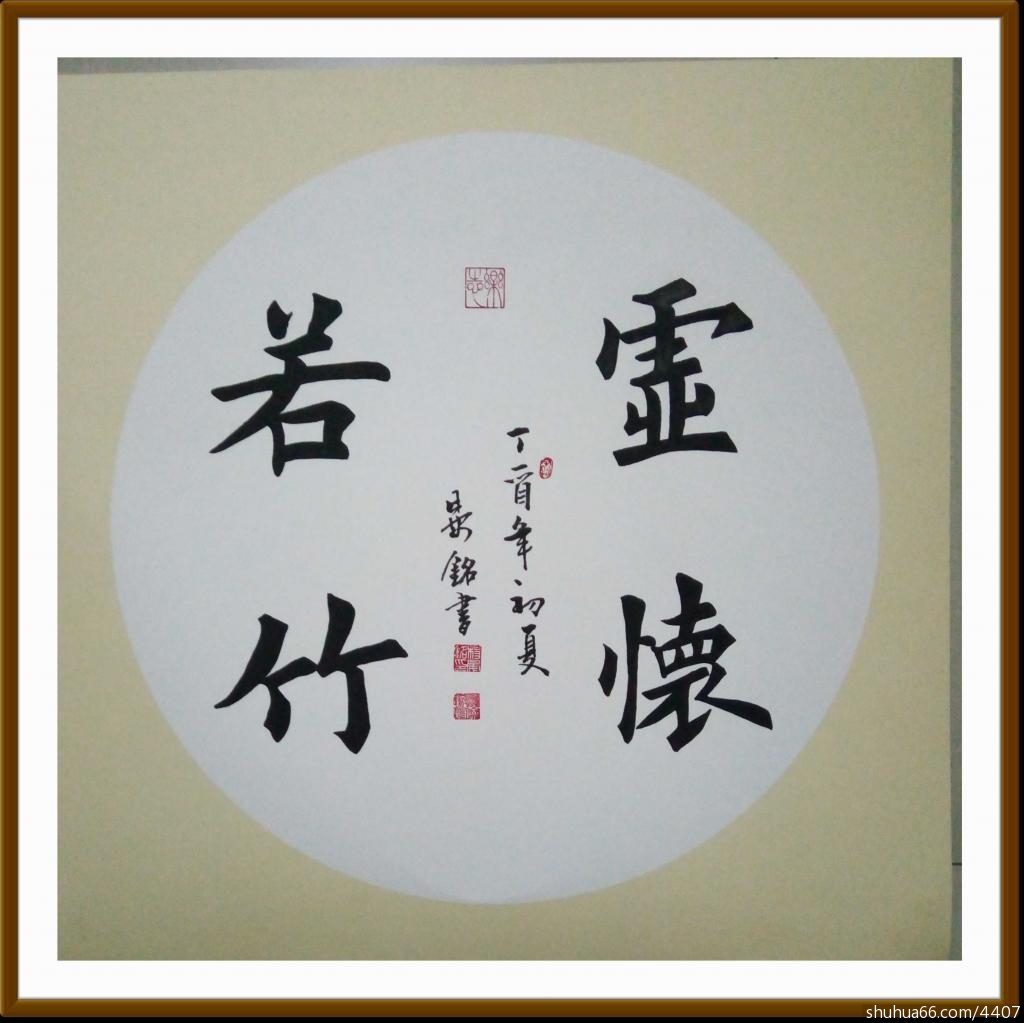 虛懷
若竹
丁酉年初夏
晏銘書
shuhua66.com/4407